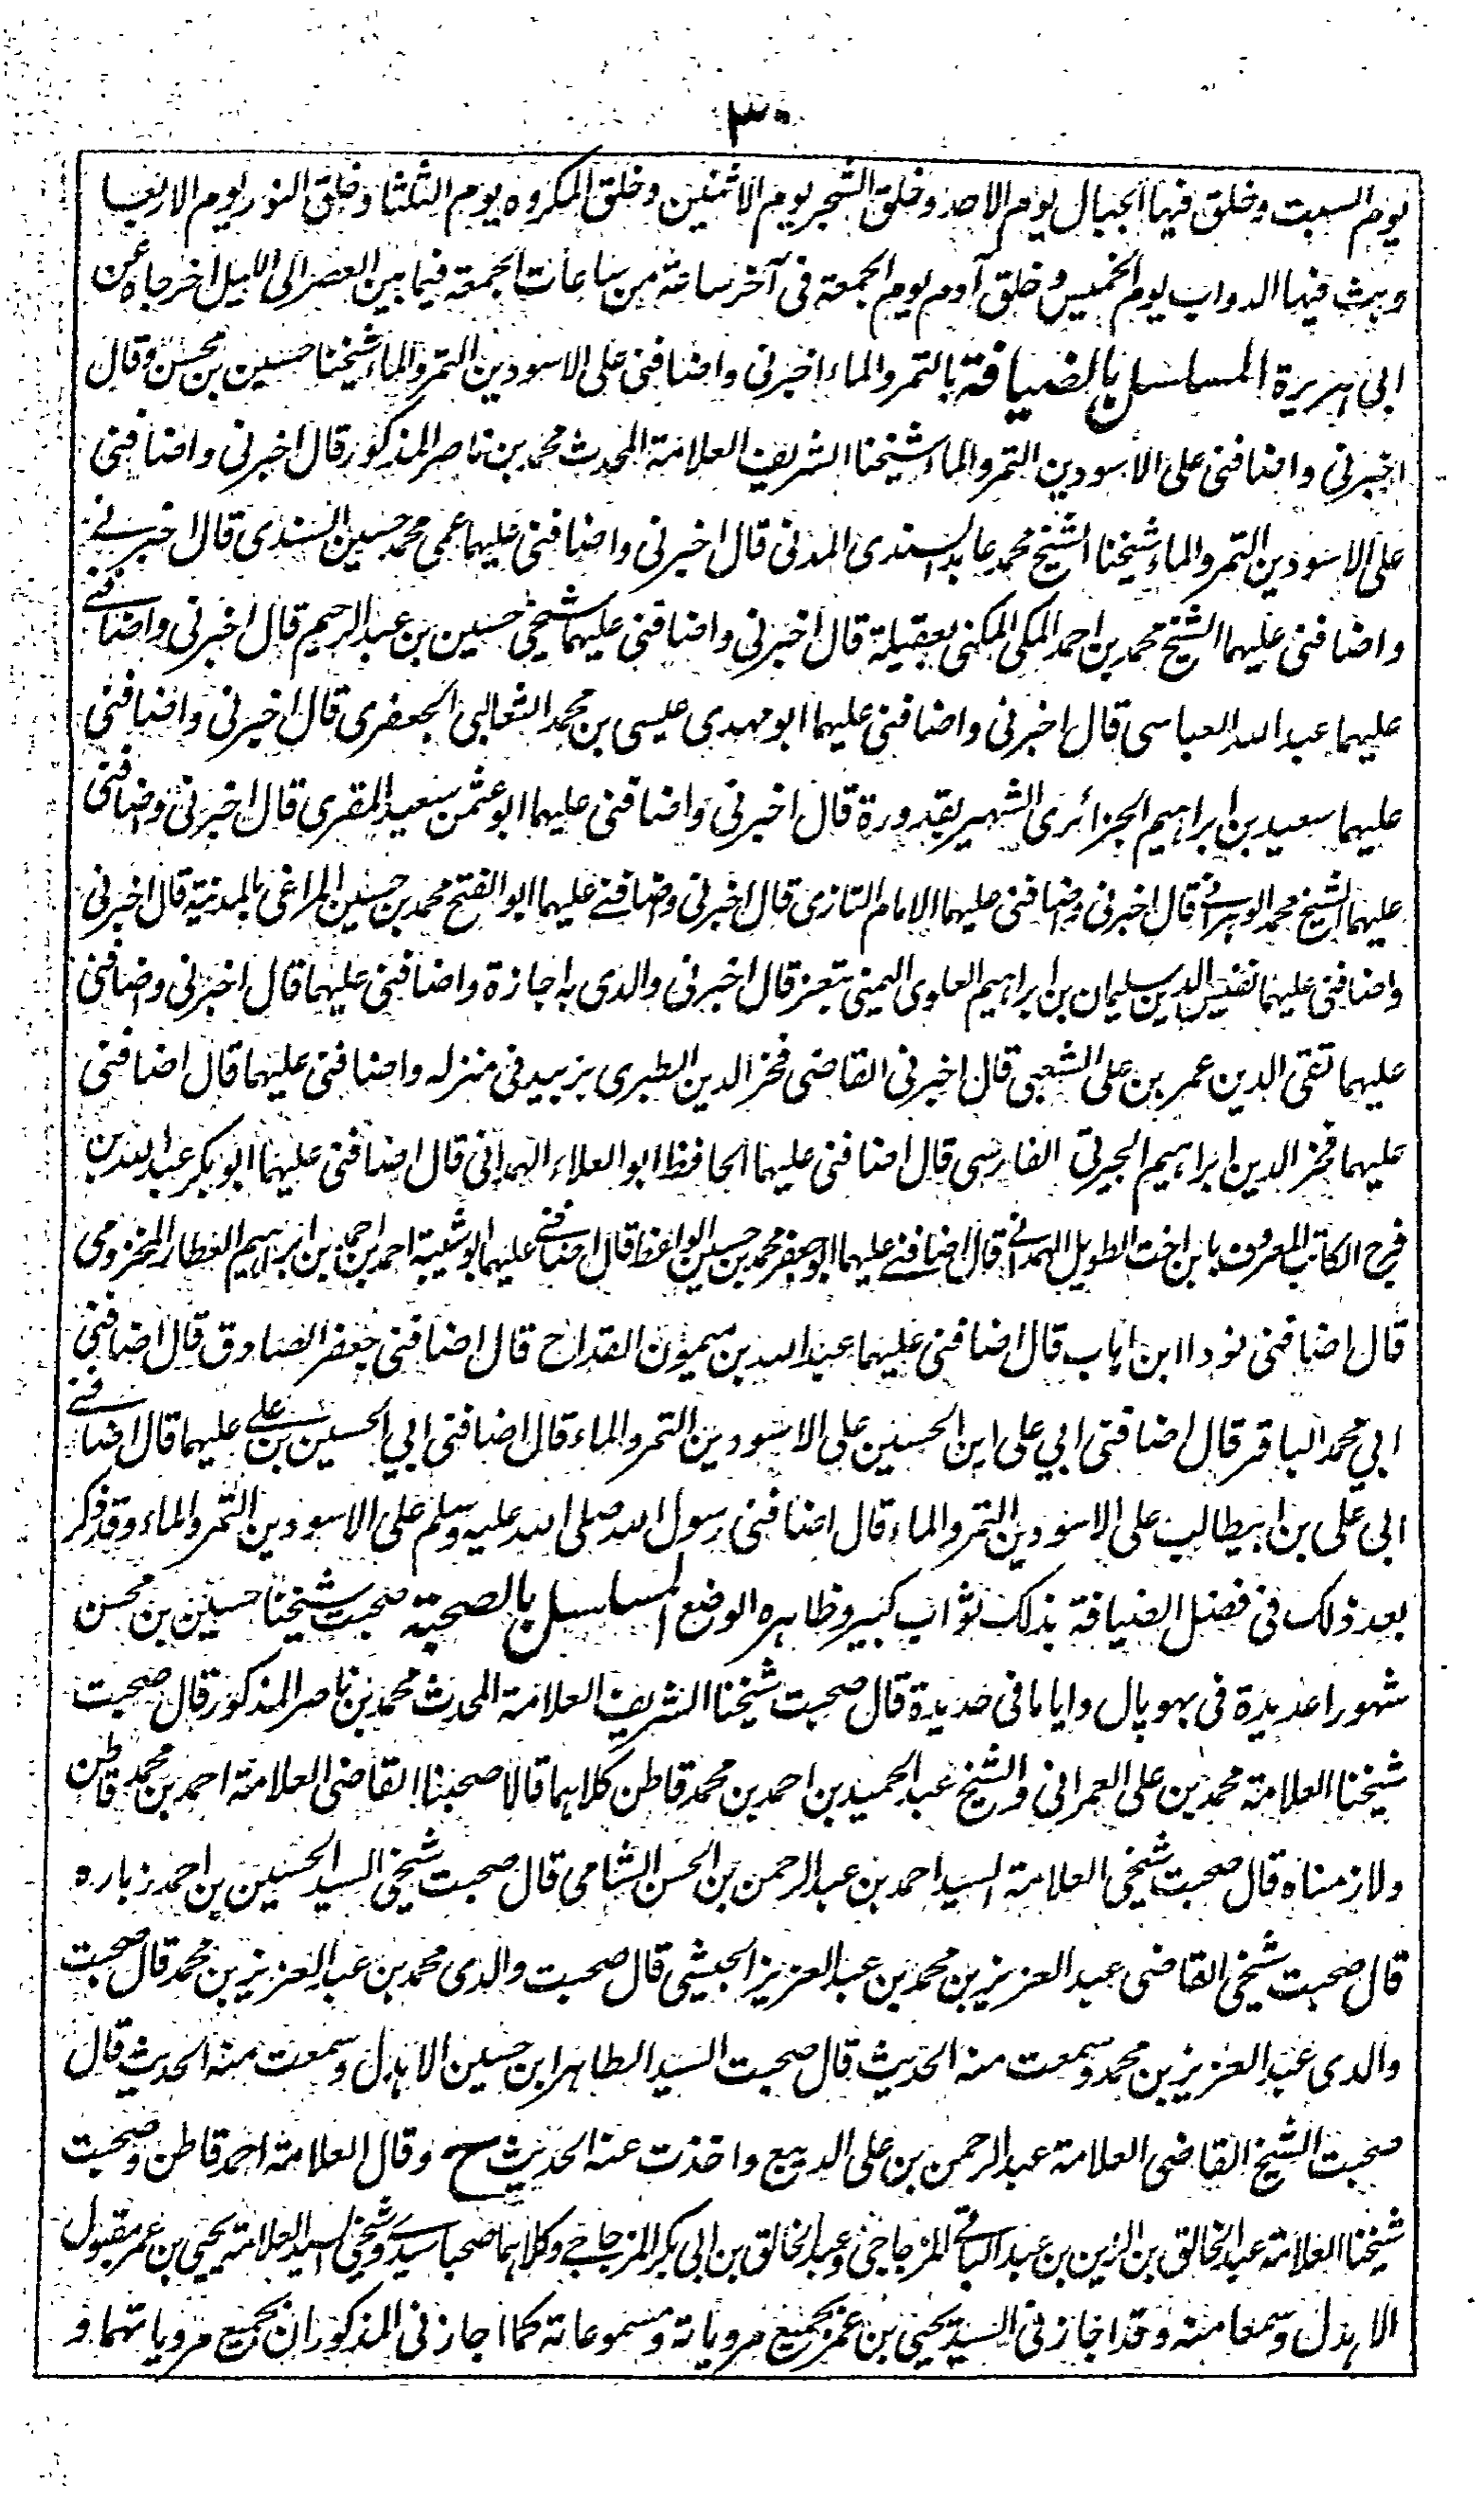 ٣٠
يوم السبت وخلق فيها الجبال يوم الاحد وخلق الشجر يوم الاثنين وخلق المكروه يوم الثلثا وخلق النور يوم الاربعا
وبث فيها الدواب يوم الخميس وخلق آدم يوم الجمعة فى آخر ساعة من ساعات الجمعة فيما بين العصر الى الليل اخرجاه عن
ابى هريرة المسلسل بالضيافة بالتمر والماء اخبرنى واضافنى على الاسودين التمر والماء شيخنا حسين بن محسن وقال
اخبرنى واضافنى على الاسودين التمر والماء شيخنا الشريف العلامة المحدث محمد بن ناصر المذكور قال اخبرنى واضافنى
على الاسودين التمر والماء شيخنا الشيخ محمد عابد السندى المدنى قال اخبرنى واضافنى عليهما عمى محمد حسين السندى قال اخبرنے
واضافنى عليهما الشيخ محمد بن احمد المكى المكنى بعقيلة قال اخبرنى واضافنى عليهما شيخى حسين بن عبد الرحيم قال اخبرنى واضافنے
عليهما عبد الله العباسى قال اخبرنى واضافنى عليهما ابو مهدى عيسى بن محمد الثعالبى الجعفرى قال اخبرنى واضافنى
عليهما سعيد بن ابراهيم الجزائرى الشهير بقدورة قال اخبرنى واضافنى عليهما ابو عثمن سعيد المقرى قال اخبرنى واضافنى
عليهما الشيخ محمد الوهرانے قال اخبرنى واضافنى عليهما الامام التازى قال اخبرنى واضافنے عليهما ابو الفتح محمد بن حسين المراغى بالمدينة قال اخبرنى
واضافنى عليهما نفيس الدين سليمان بن ابراهيم العلوى اليمنى بتعز قال اخبرنى والدى به اجازة واضافنى عليهما قال اخبرنى واضافنى
عليهما تقى الدين عمر بن على الشعبى قال اخبرنى القاضى فخر الدين الطبرى بزبيد فى منزله واضافنى عليهما قال اضافنى
عليهما فخر الدين ابراهيم الفارسى قال اضافنى عليهما الحافظ ابو العلاء الهمدانى قال اضافنى عليهما ابو بكر عبد الله بن
فرح الكاتب المعروف بابن اخت الطويل الهمدانے قال اضافنے عليهما ابو جعفر محمد بن حسين الواعظ قال اضافنے عليهما ابو شيبة احمد بن ابراهيم العطار المخزومى
قال اضافنى نودا ابن اهاب قال اضافنى عليهما عبد الله بن ميمون القداح قال اضافنى جعفر الصادق قال اضافنى
ابي محمد الباقر قال اضافنى ابي على ابن الحسين على الاسودين التمر والماء قال اضافنى ابي الحسين بن علے عليهما قال اضافنے
ابى على بن ابيطالب على الاسودين التمر والماء قال اضافنى رسول الله صلى الله عليه وسلم على الاسودين التمر والماء وقد ذكر
بعد ذلك فى فضل الضيافة بذلك ثواب كبير وظاهره الوضع المسلسل بالصحبة صحبت شيخنا حسين بن محسن
شهورا عديدة فى بهوپال واياما فى حديدة قال صحبت شيخنا الشريف العلامة المحدث محمد بن ناصر المذكور قال صحبت
شيخنا العلامة محمد بن على العمرانى والشيخ عبد الحميد بن احمد بن محمد قاطن كلاهما قالا صحبنا القاضى العلامة احمد بن محمد قاطن
ولازمناه قال صحبت شيخى العلامة السيد احمد بن عبد الرحمن بن الحسن الشامى قال صحبت شيخى السيد الحسين بن احمد زباره
قال صحبت شيخى القاضى عبد العزيز بن محمد بن عبد العزيز الحبيشى قال صحبت والدى محمد بن عبد العزيز بن محمد قال صحبت
والدى عبد العزيز بن محمد وسمعت منه الحديث قال صحبت السيد الطاهر ابن حسين الاهدل وسمعت منه الحديث قال
صحبت الشيخ القاضى العلامة عبد الرحمن بن على الديبع واخذت عنه الحديث ح وقال العلامة احمد قاطن وصحبت
شيخنا العلامة عبد الخالق بن الزين بن عبد الباقى المزجاجى وعبد الخالق بن ابى بكر المزجاجے وكلاهما صحبا سيدے وشيخى السيد العلامة يحيى بن عمر مقبول
الاهدل وسمعا منه وقد اجازنى السيد يحيى بن عمر بجميع مروياته ومسموعاته كما اجازنى المذكوران بجميع مروياتهما و